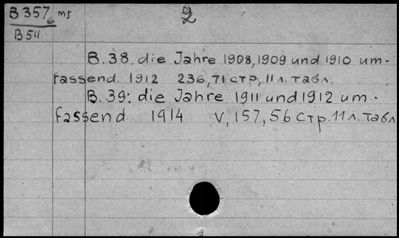 B 357₆ ms
B 54
2
B. 38. die Jahre 1908, 1909 und 1910 um-
fassend. 1912 236, 71 стр, 11 л. табл.
B. 39: die Jahre 1911 und 1912 um-
fassend 1914 V, 157, 56 стр. 11 л. табл